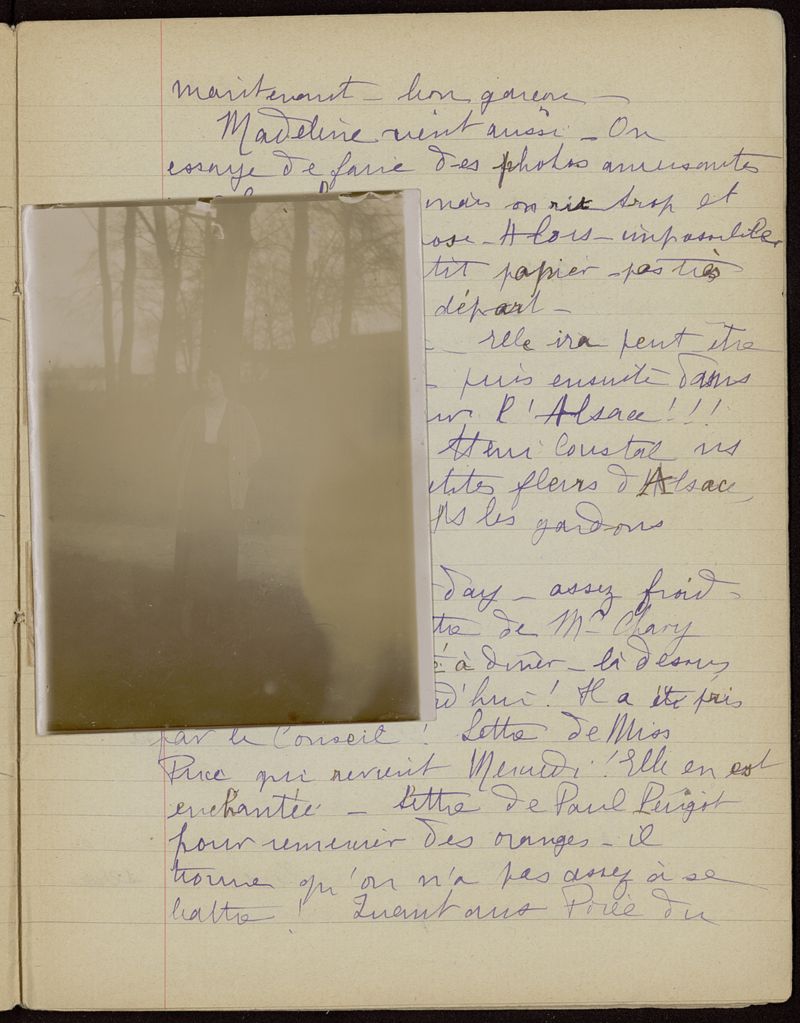 maintenant – bon garçon –
Madeleine vient aussi – On
essaye de faire des photos amusantes
mais on rit trop et
ose – Alors – impossible
tit papier – pas très
départ –
– elle ira peut être
– puis ensuite dans
ur l'Alsace!!!
Henri Coustal ns
etites fleurs d'Alsace,
les gardons
day – assez froid –
tre de Mr Chavy
à dîner – là dessus
rd'hui! Il a été pris
par le Conseil! Lettre de Miss
qui revient Mercredi! Elle en est
enchantée – Lettre de Paul Peugot
pour remercier des oranges – il
trouve qu'on n'a pas assez à se
battre! du